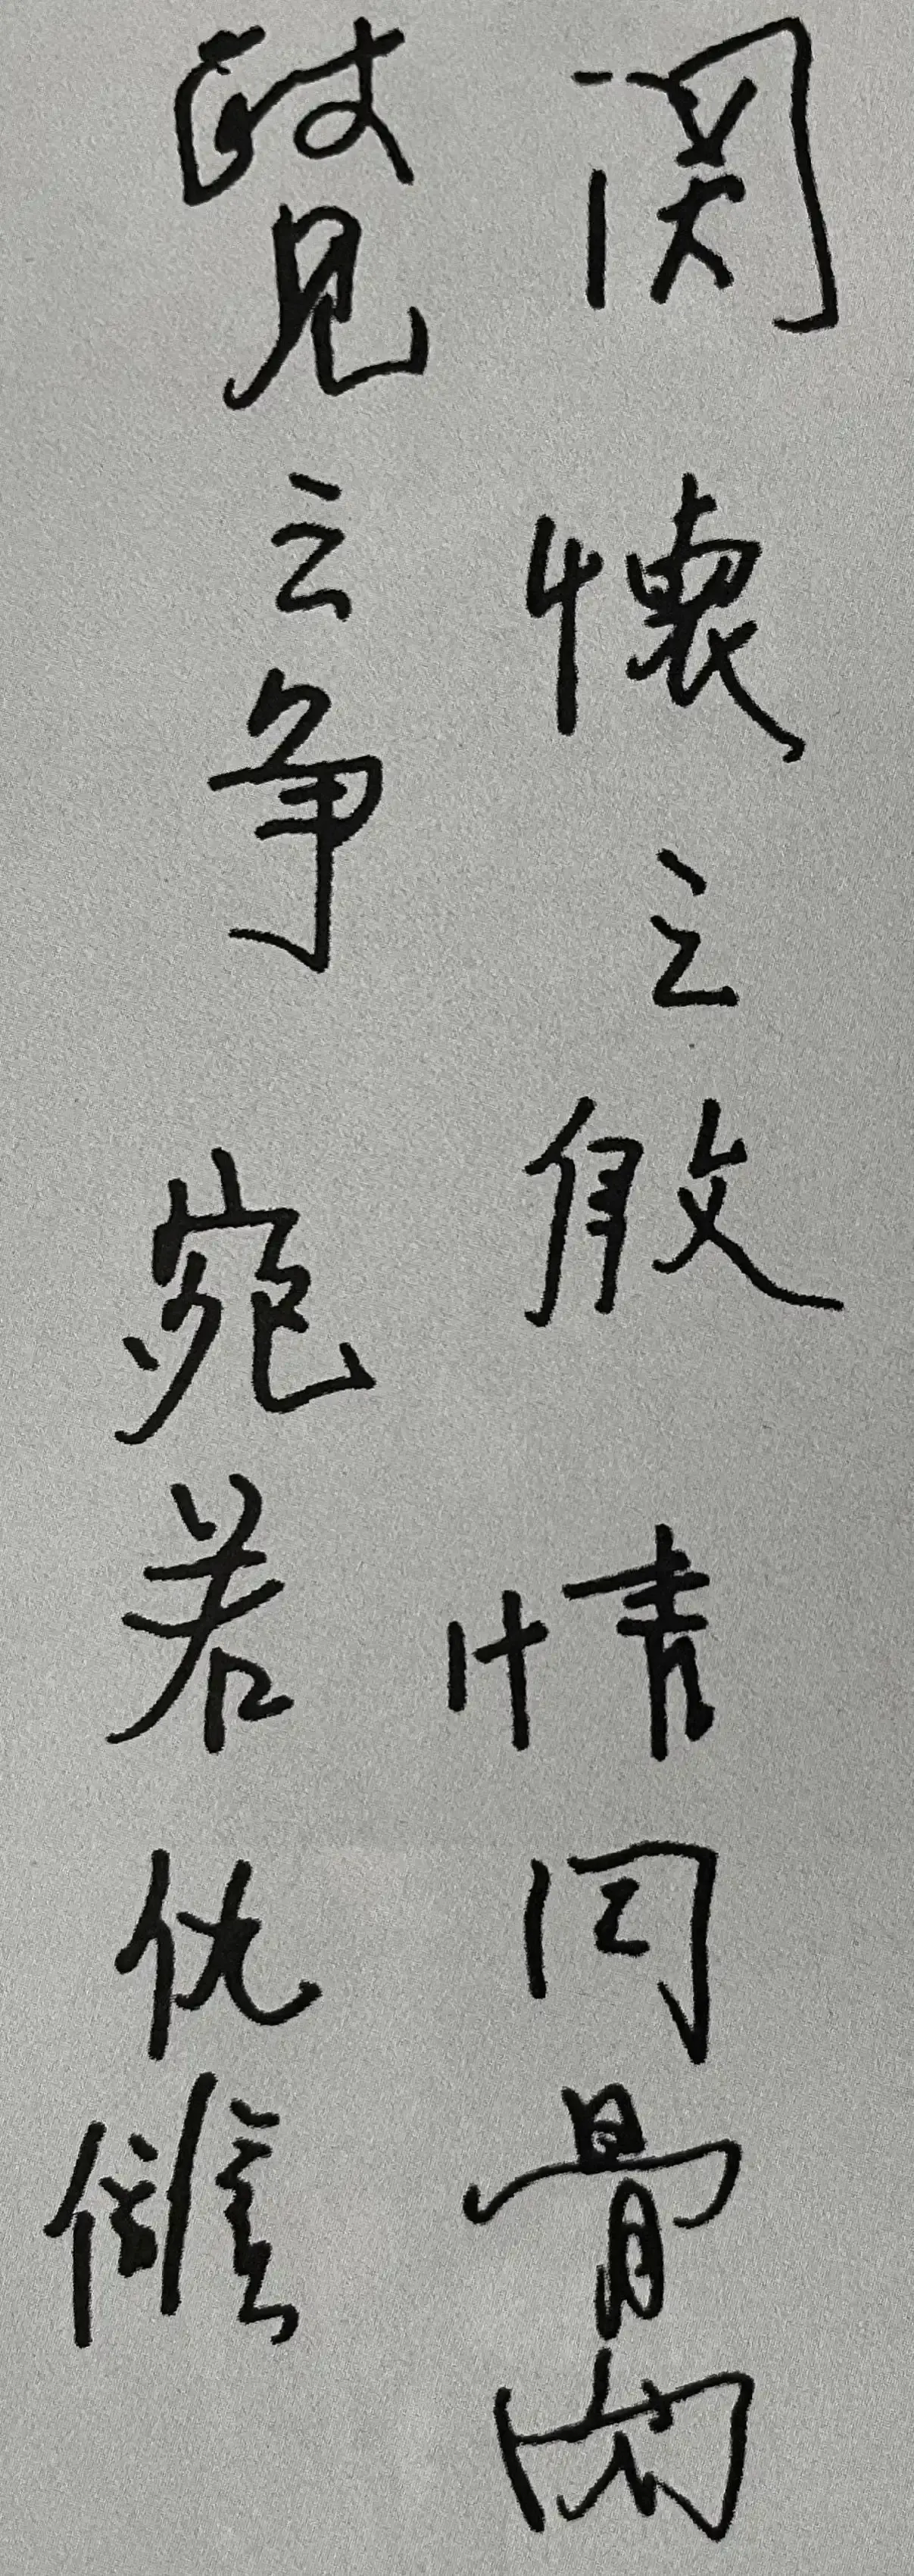 関懐之殷情同骨肉
政見之争宛若仇雠